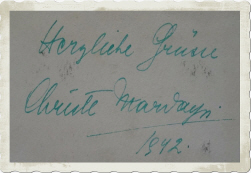 Herzliche Grüsse
Christl Mardayn
1942.